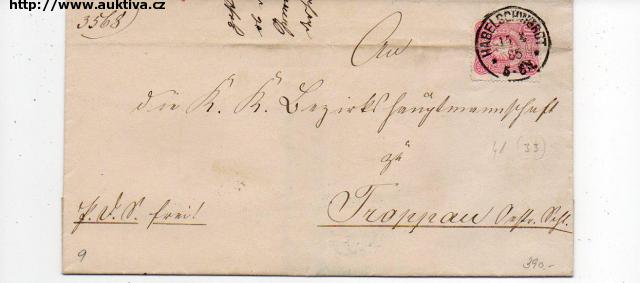 http://www.auktiva.cz
3568
An
die K. K. Bezirkshauptmannschaft
zu
Troppau Oestr. Schl.
frei!
HABELSCHWERDT
85
5-6N.
41 (33)
9
390,-